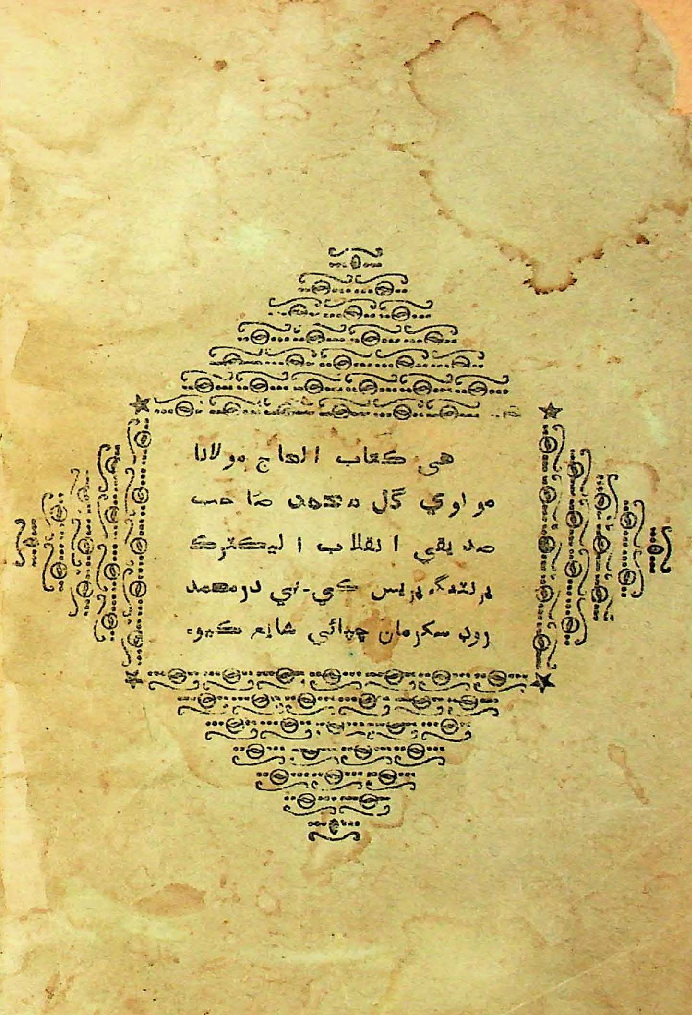 هي ڪتاب الحاج مولانا
مولوي گل محمد صاحب
صديقي انقلاب اليڪٽرڪ
پرنٽنگ پريس ڪي.ٽي درمحمد
روڊ سکر مان ڇپائي شايع ڪيو.